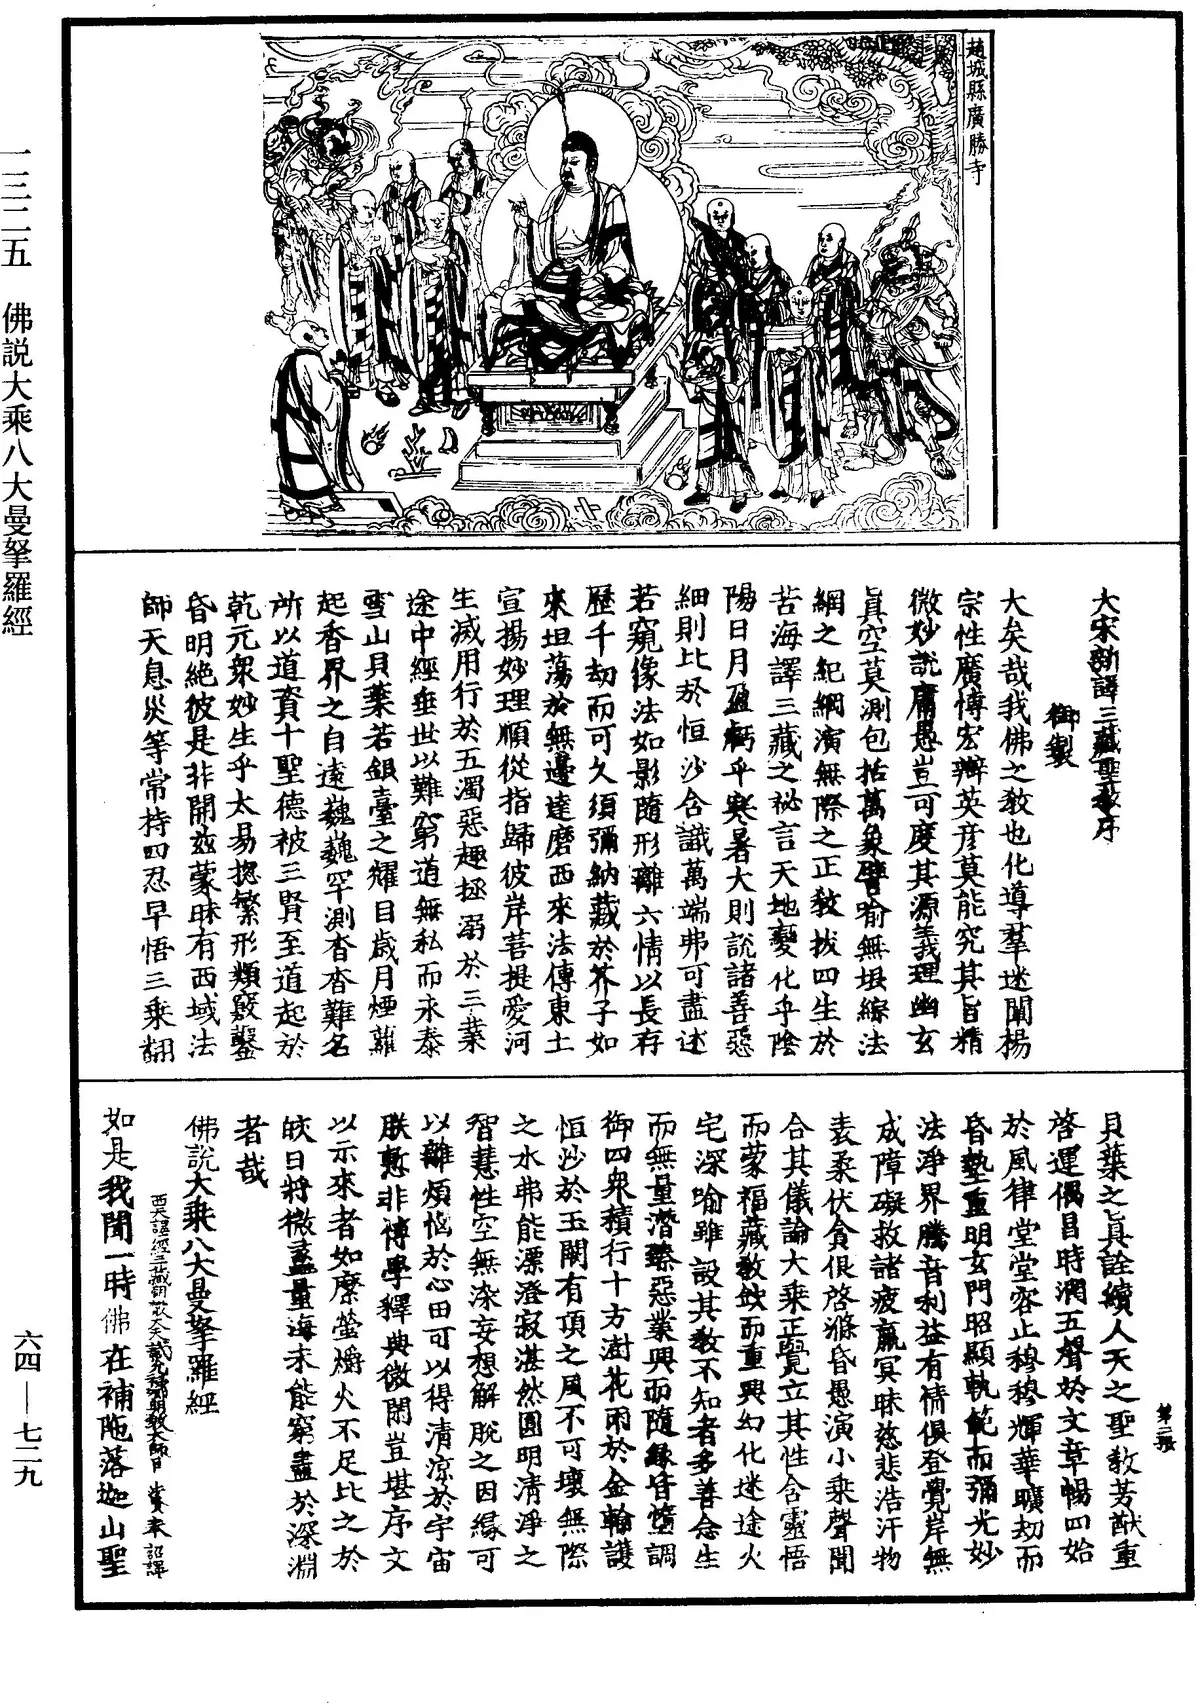 趙城縣廣勝寺
大宋新譯三藏聖教序
御製
大矣哉我佛之教也化導羣迷闡揚
宗性廣博宏辯英彥莫能究其旨精
微妙說庸愚豈可度其源義理幽玄
真空莫測包括萬象譬喻無垠綜法
網之紀綱演無際之正教拔四生於
苦海譯三藏之祕言天地變化乎陰
陽日月盈虧乎寒暑大則說諸善惡
細則比於恒沙含識萬端弗可盡述
若窺像法如影隨形離六情以長存
歷千劫而可久須彌納藏於芥子如
來坦蕩於無邊達磨西來法傳東土
宣揚妙理順從指歸彼岸菩提愛河
生滅用行於五濁惡趣拯溺於三業
途中經垂世以難窮道無私而永泰
雪山貝葉若銀臺之耀目歲月煙蘿
起香界之自遠巍巍罕測杳杳難名
所以道資十聖德被三賢至道起於
乾元衆妙生乎太易揔繁形類竅鑿
昏明絕彼是非開茲蒙昧有西域法
師天息災等常持四忍早悟三乘翻
貝葉之真詮續人天之聖教芳猷重
啓運偶昌時潤五聲於文章暢四始
於風律堂堂容止穆穆輝華曠劫而
昏墊重明玄門昭顯軌範而彌光妙
法淨界騰音利益有情俱登覺岸無
成障礙救諸疲羸冥昧慈悲浩汗物
表柔伏貪佷啓滌昏愚演小乘聲聞
合其儀論大乘正覺立其性含靈悟
而蒙福藏教缺而重興幻化迷途火
宅深喻雖設其教不知者多善念生
而無量潛臻惡業興而隨緣皆墮調
御四衆積行十方澍花雨於金輪護
恒沙於玉闕有頂之風不可壞無際
之水弗能漂澄寂湛然圓明清淨之
智慧性空無染妄想解脫之因緣可
以離煩惱於心田可以得清涼於宇宙
朕慙非博學釋典微閑豈堪序文
以示來者如縻螢爝火不足比之於
皎日將微蠡量海未能窮盡於深淵
者哉
第二張
佛說大乘八大曼拏羅經
西天譯經三藏朝散大夫試光祿卿明教大師臣法賢奉 詔譯
如是我聞一時佛在補陁落迦山聖
一三二五 佛説大乘八大曼拏羅經
六四—七二九